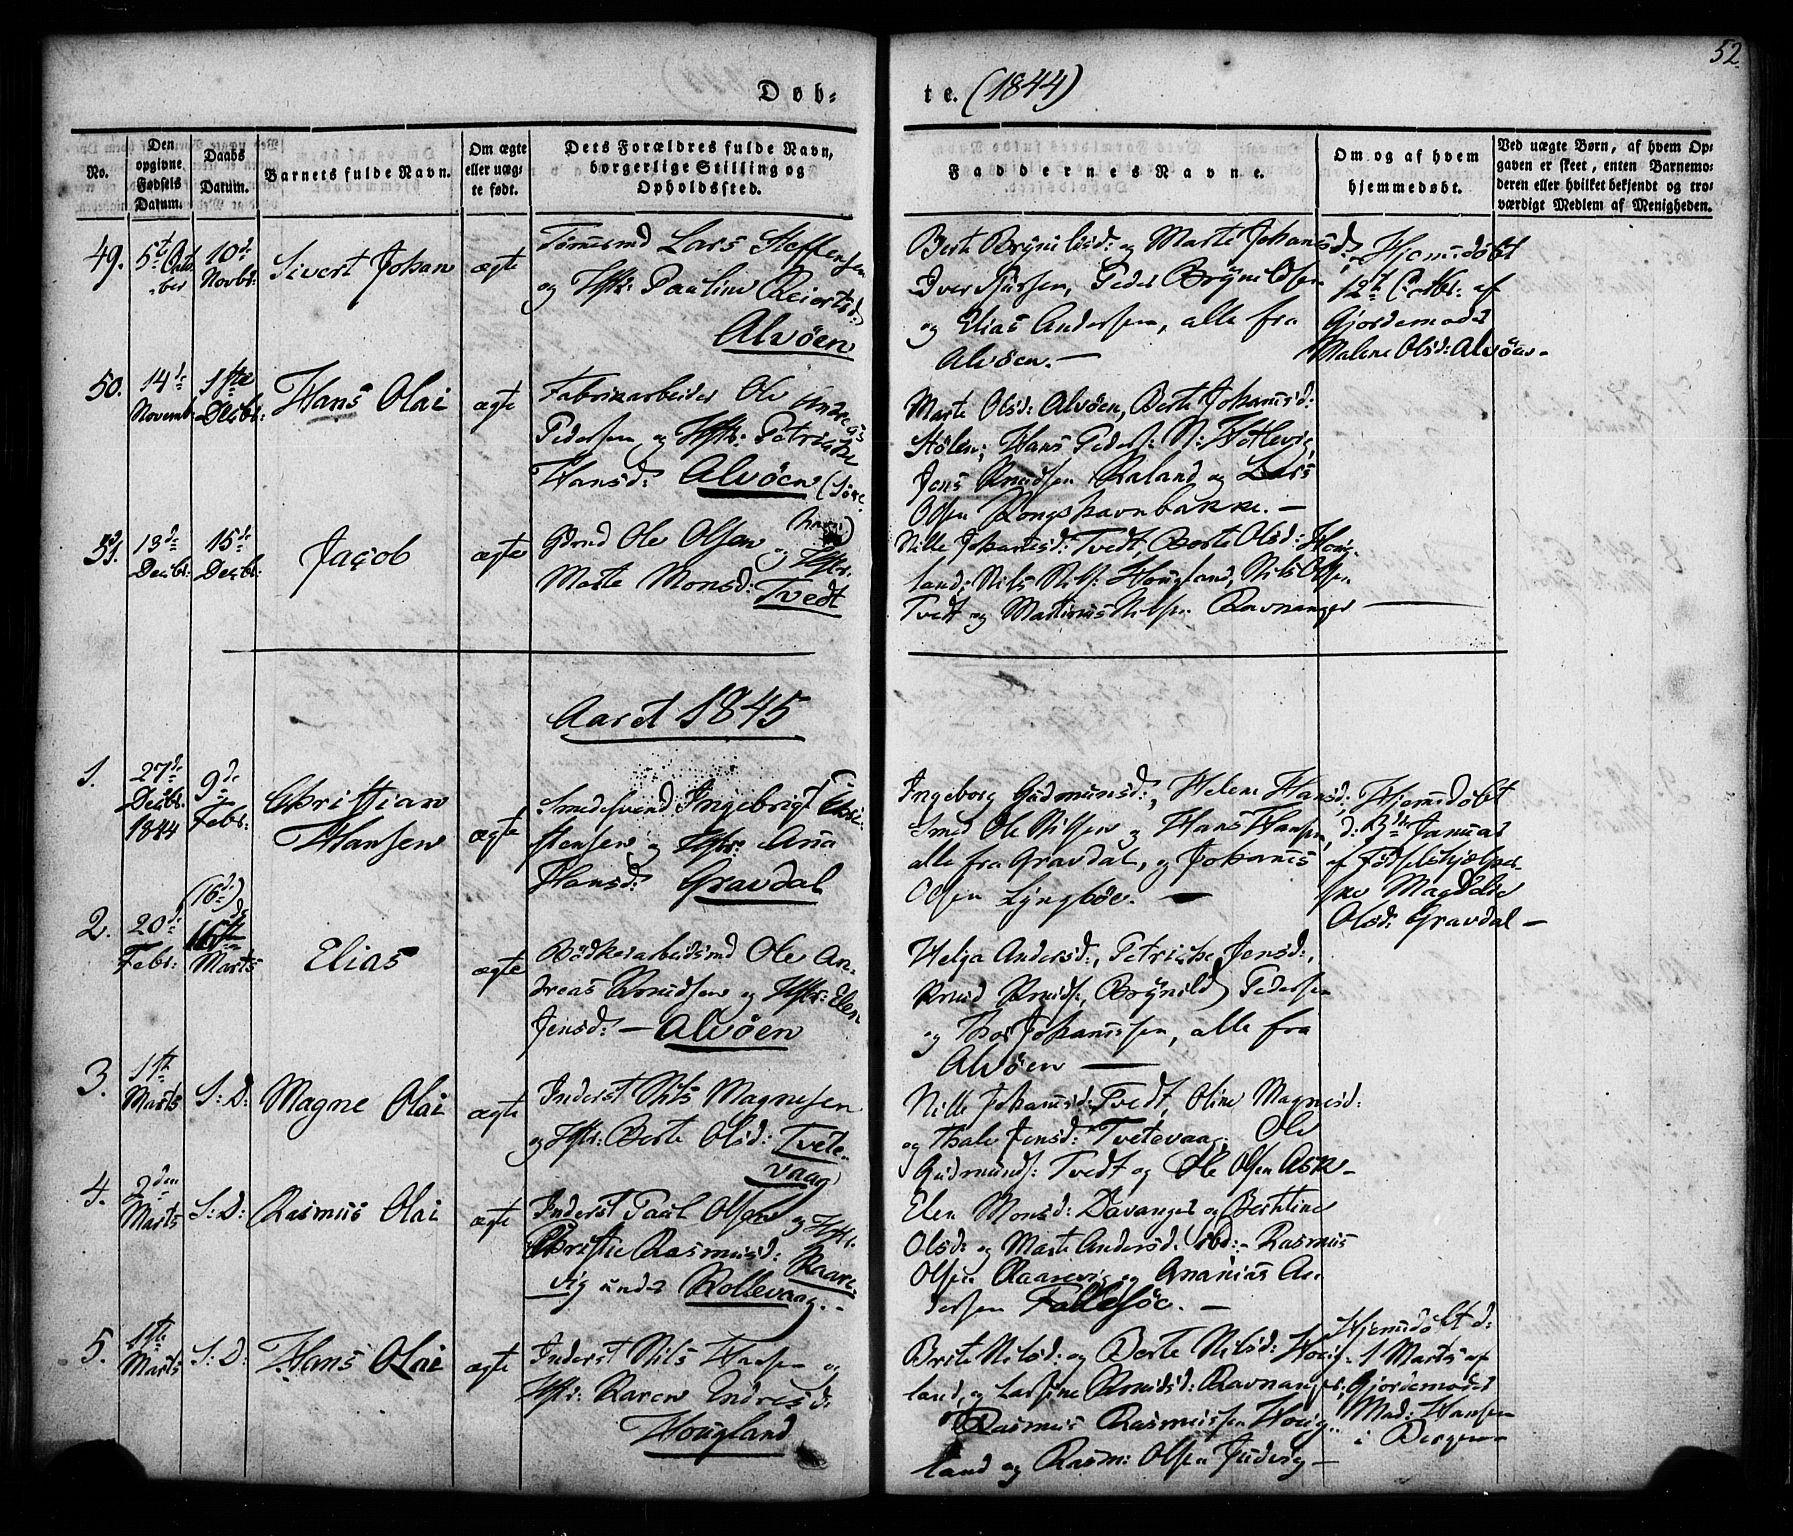 52.
Døb-
te. (1844)
No.
Den
opgivne
Fødsels
Datum.
Daabs
Datum.
Barnets fulde Navn.
Om ægte
eller uæg-
te født.
Dets Forældres fulde Navn,
borgerlige Stilling og
Opholdssted.
Faddernes Navne.
Om og af hvem
hjemmedøbt.
Ved uægte Børn, af hvem Op-
gaven er skeet, enten Barnemo-
deren eller hvilket bekjendt og tro-
værdigt Medlem af Menigheden.
49.
5t Octo-
ber
10de
Novbr:
Sivert Johan
ægte
Tømmermd Lars Steffensen
og Hstr: Pauline Reiertsd:
Alvöen
Berte Brynildsd: og Marte Johannsd:,
Iver, Peder Bryne Olsen
og Elias Andersen, alle fra
Alvöen. —
Hjemmedøbt
12t Octbr: af
Gjordemoder
Malene Olsd: Alvöen —
50.
14de
Novemb:
1ste
Decbr:
Hans Olai
ægte
Fabrikarbeider Ole Andreas
Pedersen og Hstr: Petricke
Hansd: Alvöen (Søre
havn)
Marte Olsd: Alvöen, Berte Johannsd:
Stölen; Hans Peders: N: Hetlevig,
Jens Knudsen Raland og Lars
Olsen Kongshavnbakke. —
51.
13de
Decbr:
15de
Decbr:
Jacob
ægte
Gbmd Ole Olsen og Hstr:
Marte Monsd: Tvedt
Nille Johannsd: Tvedt, Berte Olsd: Houg-
land; Nils Nils: Hougland, Nils Olsen
Tvedt og Martinus Nilsen Ravnanger
Aaret 1845
1.
27de
Decbr:
1844
9de
Febr:
Christian
Hansen
ægte
Smedesvend Ingebrigt Chri-
stensen og Hstr: Anna
Hansd: Gravdal
Ingeborg Gudmunsd:, Helene Hansd:,
Smed Ole Nilsen og Hans Hansen,
alle fra Gravdal, og Johannes
Olsen Lyngböe. —
Hjemmedöbt
d: 3die Januar
af Födselshjelper-
ske Magdale
Olsd: Gravdal —
2.
20de
Febr:
(16de)
Marts
Elias
ægte
Bödkerarbeidsmd Ole An-
dreas Knudsen og Hstr: Elen
Jensd: — Alvöen
Helga Andersd:, Petricke Jensd:,
Knud Knuds:, Brynild Pedersen
og Thor Johannssen, alle fra
Alvöen —
3.
1ste
Marts
S: D:
Magne Olai
ægte
Inderst Nils Magnesen
og Hstr: Berte Olsd: Tvete-
vaag
Nille Johannsd: Tvedt, Oline Magnesd:
og Thale Jensd: Tvetevaag; Ole
Gudmunds: Tvedt og Ole Olsen Ask —
4.
2den
Marts
S: D:
Rasmus Olai
ægte
Inderst Paul Olsen og Hstr:
Christie Rasmusd: Raare-
vig under Rollevaag. -
Elen Monsd: Davanger og Berthine
Olsd: og Marte Andersd: ibd: - Rasmus
Olsen Raarevig og Ananias An-
dersen Fallesöe. —
5.
1ste
Marts
S: D:
Hans Olai
ægte
Inderst Nils Hansen og
Hstr: Karen Endresd:
Hougland
Brite Nilsd: og Berte Nilsd: Houg-
land, og Larsine Knudsd: Ravnanger,
Rasmus Rasmussen Houg-
land og Rasm: Olsen Judvig —
Hjemmdöbt d:
1 Marts af
Gjordemoder
Mad: Hansen
i Bergen